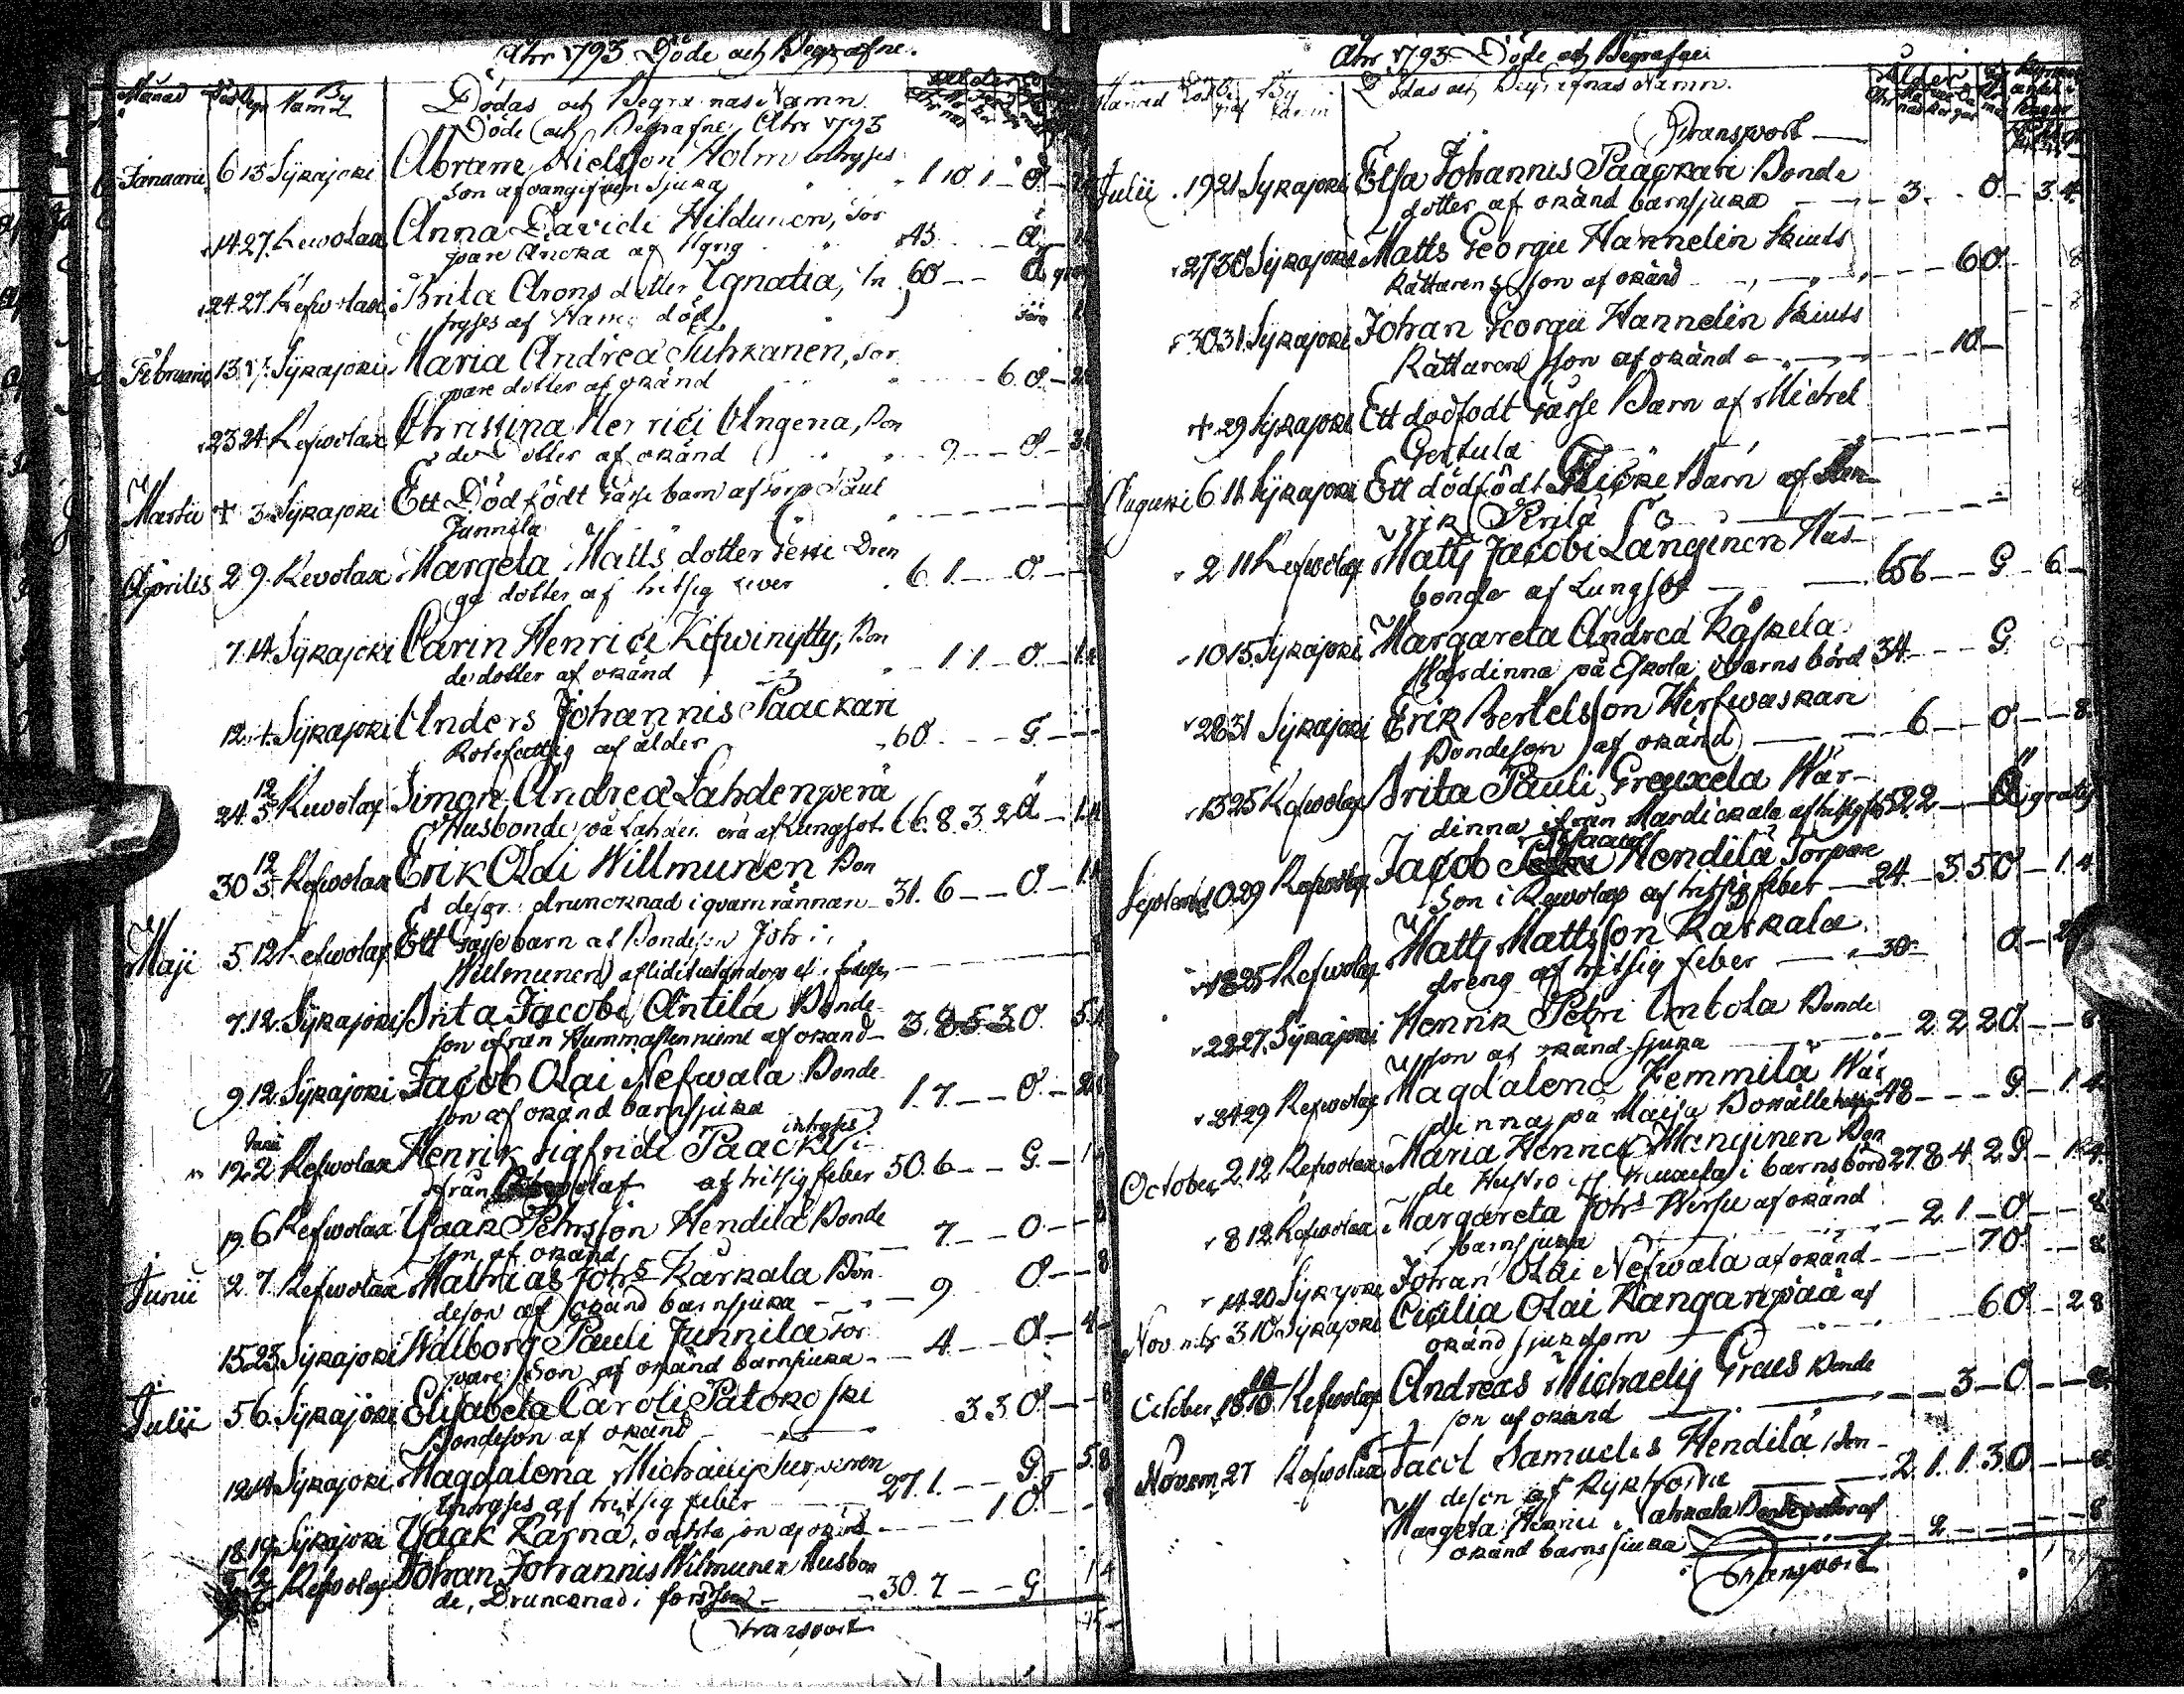 Åhr 1793 Döde och Begrafne.
Månad Död Begr By Namn Dödas och Begrafnas Namn. Ålder
Döde och Begrafne Åhr 1793
Januarii 6 13 Sijkajoki Abram Nielsson Holm inhyses 1 10 1 O
son af oangifven sjuka
14 27 Kewolax Anna Davidi Hildunen, Tor 45 Ä
pare Äncka af Hgng
24 27 Kefwolax Brita Arons dotter Ignatia, In 60 Ä
hyses af död
Februarii 13 17 Sijkajoki Maria Andreæ Juhkanen, Tor
pare dotter af okänd 6 O
23 24 Kefwolax Christina Henrici Ångena, Bon
de dotter af okänd 9 O
Martii + 3 Sijkajoki Ett Dödfödt Gåsse barn af Torp Paul
Junnila
Aprilis 2 9 Kewolax Margeta Matts dotter Dren
ge dotter af hitsig feber 6 1 O
7 14 Sijkajoki Carin Henrici Kifwinijtty, Bon
de dotter af okänd 1 1 O 14
12 Sijkajoki Anders Johannis Paackari
Rotefattig af ålder 60 G
24 12/5 Kewolax Simon Andreæ Lahdenperä
Husbonde på Lahden erä af Lungsot 66 8 3 2 G 14
30 12/5 Kefwolax Erik Olai Willmunen Bon
desgr: druncknad i qvarnrännan 31 6 O
Maji 5 12 Kefwolax Ett Gåsse barn af Bondeson Joh:
Willmunen
7 12 Sijkajoki Brita Jacobi Antila Bonde
son ifrån Hummastenniemi af okänd 3 8 5 3 O
9 12 Sijkajoki Jacob Olai Nefwala Bonde
son af okänd barnsjuka 1 7 O
12 2 Junii Kefwolax Henrik Sigfridi Paacki inhyses
ifrån af hitsig feber 50 6 G
19 6 Kefwolax Isaak Pehrsson Hendilä Bonde
son af okänd 7 O
Junii 2 7 Kefwolax Mathias Johs Karkala Bon
deson af okänd barnsjuka 9 O 8
15 23 Sijkajoki Walborg Pauli Junnila Tor
pare Son af okänd barnsjuka 4 O 4
Julii 5 6 Sijkajoki Elisabeta Caroli Patokoski
Bondeson af okänd 3 3 O 8
12 14 Sijkajoki Magdalena Michaelis
Inhyses af hitsig feber 27 1 G 58
18 19 Sijkajoki Isaak Karna, son af okänd 1 O
Kefwolax Johan Johannis Wilmunen Husbon
de, Druncknad i forssen 30 7 G 14
Transport

Åhr 1793 Döde och Begrafne
Månad Död Begraf By Namn Dödas och Begrafnas Namn. Ålder
Transport
Julii 19 21 Sijkajoki Elsa Johannis Paackari Bonde
dotter af okänd barnsjuka 3 O 3 4
27 30 Sijkajoki Matts Georgii Hannelin Skiuts
Rättarens Son af okänd 6 O 8
30 31 Sijkajoki Johan Georgii Hannelin Skiuts
Rättarens son af okänd 10
+ 29 Sijkajoki Ett dödfödt Gåsse Barn af Michel
Gertula
Augusti 6 11 Sijkajoki Ett dödfödt Flicke Barn af Hen
rik Perilä
2 11 Kefwolax Matts Jacobi Länginen Hus
bonde af Lungsot 65 6 G 6
10 15 Sijkajoki Margareta Andreæ Kåskela
Wärdinna på Eskola i Barns börd 34 G
28 31 Sijkajoki Erik Bertelsson Hirfwaskari
Bondeson af okänd 6 O 8
13 25 Kefwolax Brita Pauli Greuxela Wär
dinna ifrån Mardickala af hitsig 65 2 2 Ä gratis
Septemb 10 29 Kefwolax Jacob Isaacsson Hendilä Torpare
Son i Kewolax af hitsig feber 24 3 5 O 14
18 25 Kefwolax Matts Mattsson Karkala
dreng af hitsig feber 30 O
22 27 Sijkajoki Henrik Petri Antola Bonde
son af okänd sjuka 2 2 2 O 8
24 29 Kefwolax Magdalena Hemmilä Wär
dinna på Maija Boställe 48 G 14
October 2 12 Kefwolax Maria Henrici Manginen Bon
de Hustro i barnsbörd 27 8 4 2 G 14
8 12 Kefwolax Margareta Johs Wirsu af okänd
barnsjuka 2 1 O 8
14 20 Sijkajoki Johan Olai Nefwala af okänd 7 O 8
Novembr 3 10 Sijkajoki Cicilia Olai Kanganpää af
okänd sjukdom 6 O 28
October 18 10 Kefwolax Andreas Michaelis Graus Bonde
son af okänd 3 O 8
Novem 27 Kefwolax Jacob Samuelis Hendilä Bon
deson af Kikhosta 2 1 1 3 O 8
Margeta Henrici
okänd barnsjuka 2 8
Transport